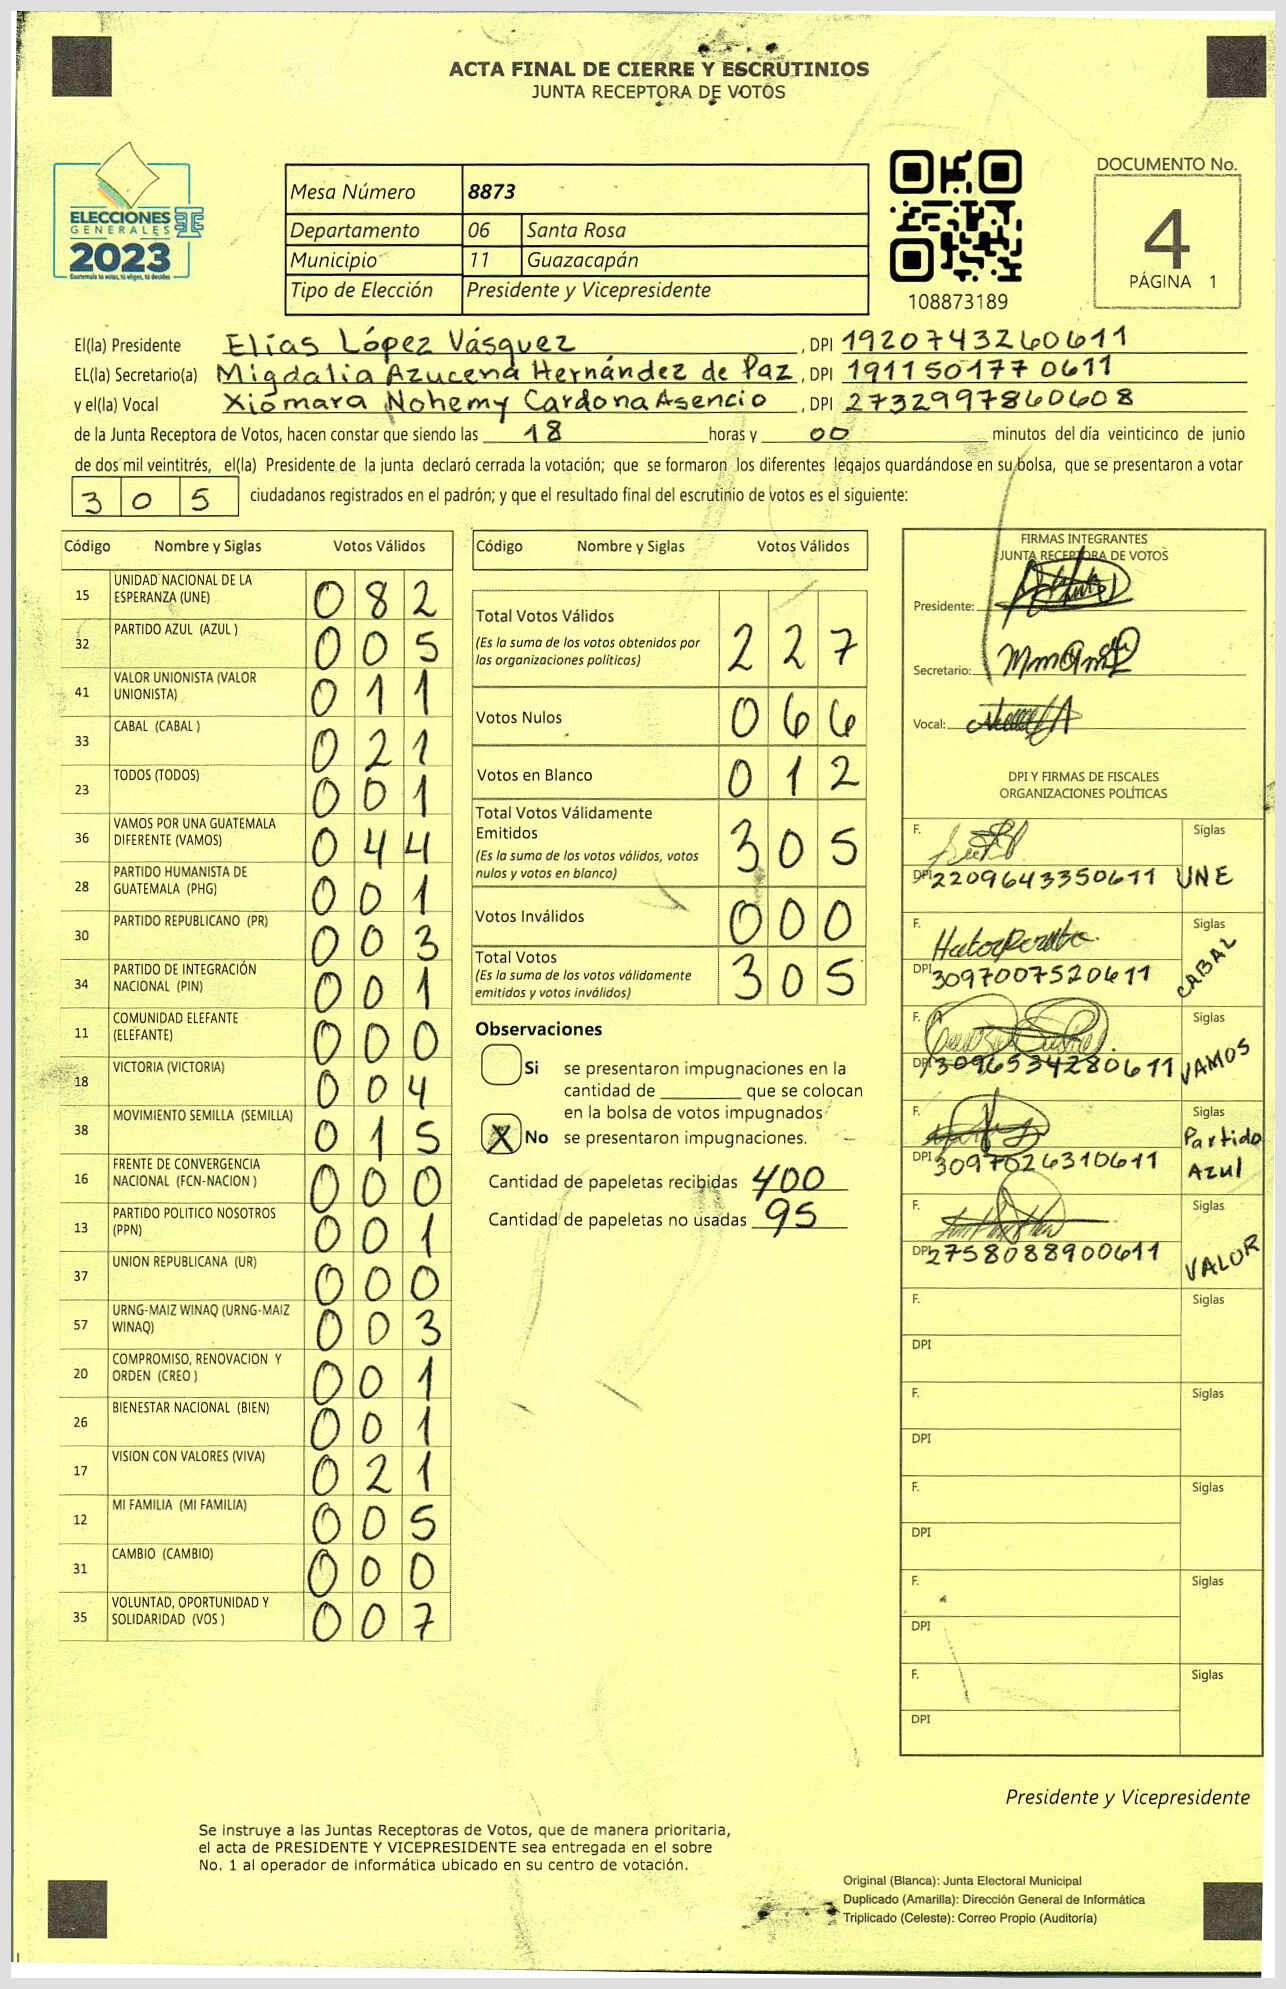 ACTA FINAL DE CIERRE Y ESCRUTINIOS
JUNTA RECEPTORA DE VOTOS
ELECCIONES
GENERALES
2023
Guatemala tú votas, tú eliges, tú decides
Mesa Número 8873
Departamento 06 Santa Rosa
Municipio 11 Guazacapán
Tipo de Elección Presidente y Vicepresidente
108873189
DOCUMENTO No.
4
PÁGINA 1
El(la) Presidente Elías López Vásquez, DPI 1920743260611
EL(la) Secretario(a) Migdalia Azucena Hernández de Paz, DPI 1911501770611
y el(la) Vocal Xiomara Nohemy Cardona Asencio, DPI 2732997860608
de la Junta Receptora de Votos, hacen constar que siendo las 18 horas y 00 minutos del día veinticinco de junio
de dos mil veintitrés, el(la) Presidente de la junta declaró cerrada la votación; que se formaron los diferentes legajos guardándose en su bolsa, que se presentaron a votar
305 ciudadanos registrados en el padrón; y que el resultado final del escrutinio de votos es el siguiente:
Código Nombre y Siglas Votos Válidos
15 UNIDAD NACIONAL DE LA ESPERANZA (UNE) 082
32 PARTIDO AZUL (AZUL ) 005
41 VALOR UNIONISTA (VALOR UNIONISTA) 011
33 CABAL (CABAL ) 021
23 TODOS (TODOS) 001
36 VAMOS POR UNA GUATEMALA DIFERENTE (VAMOS) 044
28 PARTIDO HUMANISTA DE GUATEMALA (PHG) 001
30 PARTIDO REPUBLICANO (PR) 003
34 PARTIDO DE INTEGRACIÓN NACIONAL (PIN) 001
11 COMUNIDAD ELEFANTE (ELEFANTE) 000
18 VICTORIA (VICTORIA) 004
38 MOVIMIENTO SEMILLA (SEMILLA) 015
16 FRENTE DE CONVERGENCIA NACIONAL (FCN-NACION ) 000
13 PARTIDO POLITICO NOSOTROS (PPN) 001
37 UNION REPUBLICANA (UR) 000
57 URNG-MAIZ WINAQ (URNG-MAIZ WINAQ) 003
20 COMPROMISO, RENOVACION Y ORDEN (CREO ) 001
26 BIENESTAR NACIONAL (BIEN) 001
17 VISION CON VALORES (VIVA) 021
12 MI FAMILIA (MI FAMILIA) 005
31 CAMBIO (CAMBIO) 000
35 VOLUNTAD, OPORTUNIDAD Y SOLIDARIDAD (VOS ) 007
Código Nombre y Siglas Votos Válidos
Total Votos Válidos 227
(Es la suma de los votos obtenidos por las organizaciones políticas)
Votos Nulos 066
Votos en Blanco 012
Total Votos Válidamente Emitidos 305
(Es la suma de los votos válidos, votos nulos y votos en blanco)
Votos Inválidos 000
Total Votos 305
(Es la suma de los votos válidamente emitidos y votos inválidos)
Observaciones
Si se presentaron impugnaciones en la
cantidad de ________ que se colocan
en la bolsa de votos impugnados
X No se presentaron impugnaciones.
Cantidad de papeletas recibidas 400
Cantidad de papeletas no usadas 95
FIRMAS INTEGRANTES
JUNTA RECEPTORA DE VOTOS
Presidente:
Secretario:
Vocal:
DPI Y FIRMAS DE FISCALES
ORGANIZACIONES POLÍTICAS
F. Siglas
DPI 2209643350611 UNE
F. Siglas
DPI 3097007520611 CABAL
F. Siglas
DPI 3096534280611 VAMOS
F. Siglas
DPI 3097026310611 Partido Azul
F. Siglas
DPI 2758088900611 VALOR
F. Siglas
DPI
F. Siglas
DPI
F. Siglas
DPI
F. Siglas
DPI
F. Siglas
DPI
Presidente y Vicepresidente
Se instruye a las Juntas Receptoras de Votos, que de manera prioritaria,
el acta de PRESIDENTE Y VICEPRESIDENTE sea entregada en el sobre
No. 1 al operador de informática ubicado en su centro de votación.
Original (Blanca): Junta Electoral Municipal
Duplicado (Amarilla): Dirección General de Informática
Triplicado (Celeste): Correo Propio (Auditoría)